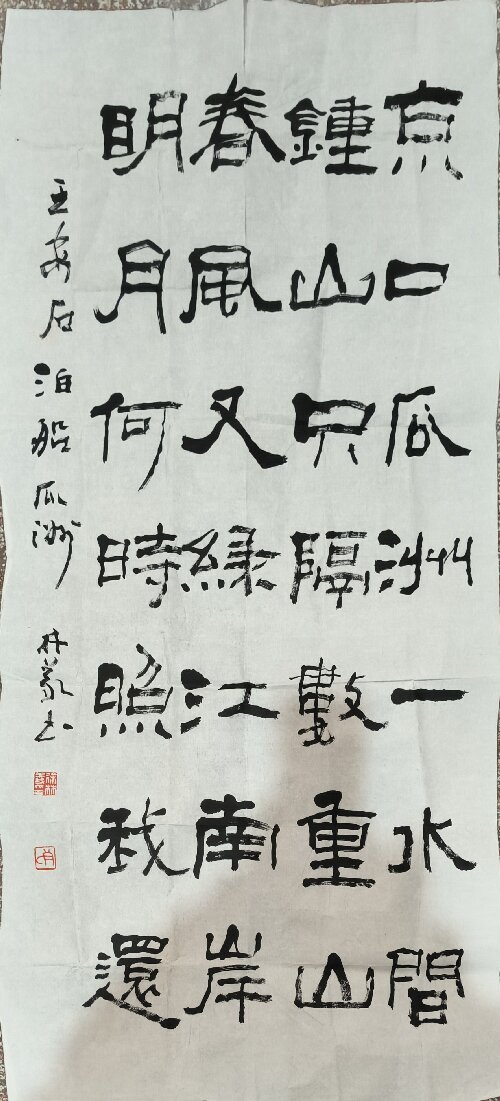 京口瓜洲一水間
鍾山只隔數重山
春風又綠江南岸
明月何時照我還
王安石泊船瓜洲 林蒙书